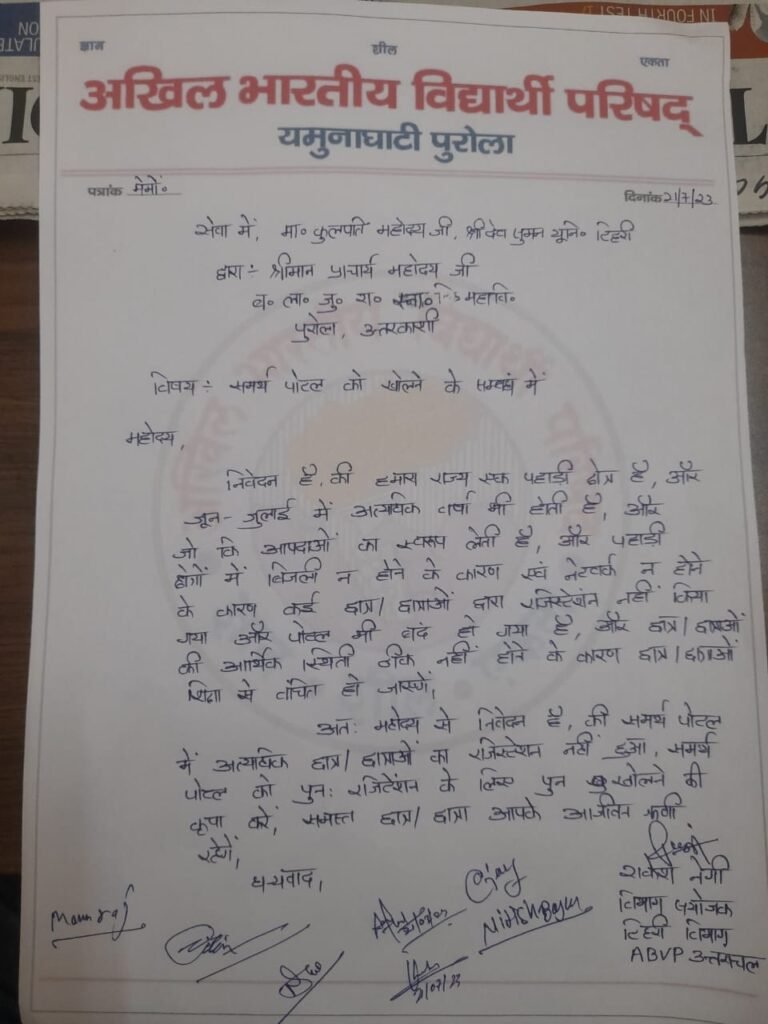 IN FOURTH TEST
ज्ञान शील एकता
अखिल भारतीय विद्यार्थी परिषद्
यमुनाघाटी पुरोला
पत्रांक मेमों॰ दिनांक 21/7/23
सेवा में, मा॰ कुलपति महोदय जी, श्रीदेव सुमन यूनि॰ टिहरी
द्वारा :- श्रीमान प्राचार्य महोदय जी
ब॰ ला॰ जु॰ रा॰ स्ना॰ महावि॰
पुरोला, उत्तरकाशी
विषय :- समर्थ पोटल को खोलने के सम्बधं में
महोदय,
निवेदन है, की हमारा राज्य एक पहाडी क्षेत्र है, और
जून-जुलाई में अत्यधिक वर्षा भी होती है, और
जो कि आपदाओं का स्वरूप लेती है, और पहाडी
क्षेत्रों में बिजली न होने के कारण एवं नेटवर्क न होने
के कारण कई छात्र/छात्राओं द्वारा रजिस्टेशंन नहीं किया
गया और पोटल भी बदं हो गया है, और छात्र/छात्राओं
की आर्थिक स्थिती ठीक नहीं होने के कारण छात्र/छात्राओं
शिक्षा से वंचित हो जाएगें,
अतः महोदय से निवेदन है, की समर्थ पोटल
में अत्यधिक छात्र/छात्राओं का रजिस्टेशन नहीं हुआ, समर्थ
पोटल को पुनः रजिटेंशन के लिए पुन खोलने की
कृपा करें, समस्त छात्र/छात्रा आपके आजीवन ऋणी
रहेगें,
धन्यवाद,
Ajay
राकेश नेगी
विभाग सयोंजक
टिहरी विभाग
ABVP उत्तराचंल
Nitish
21/07/23